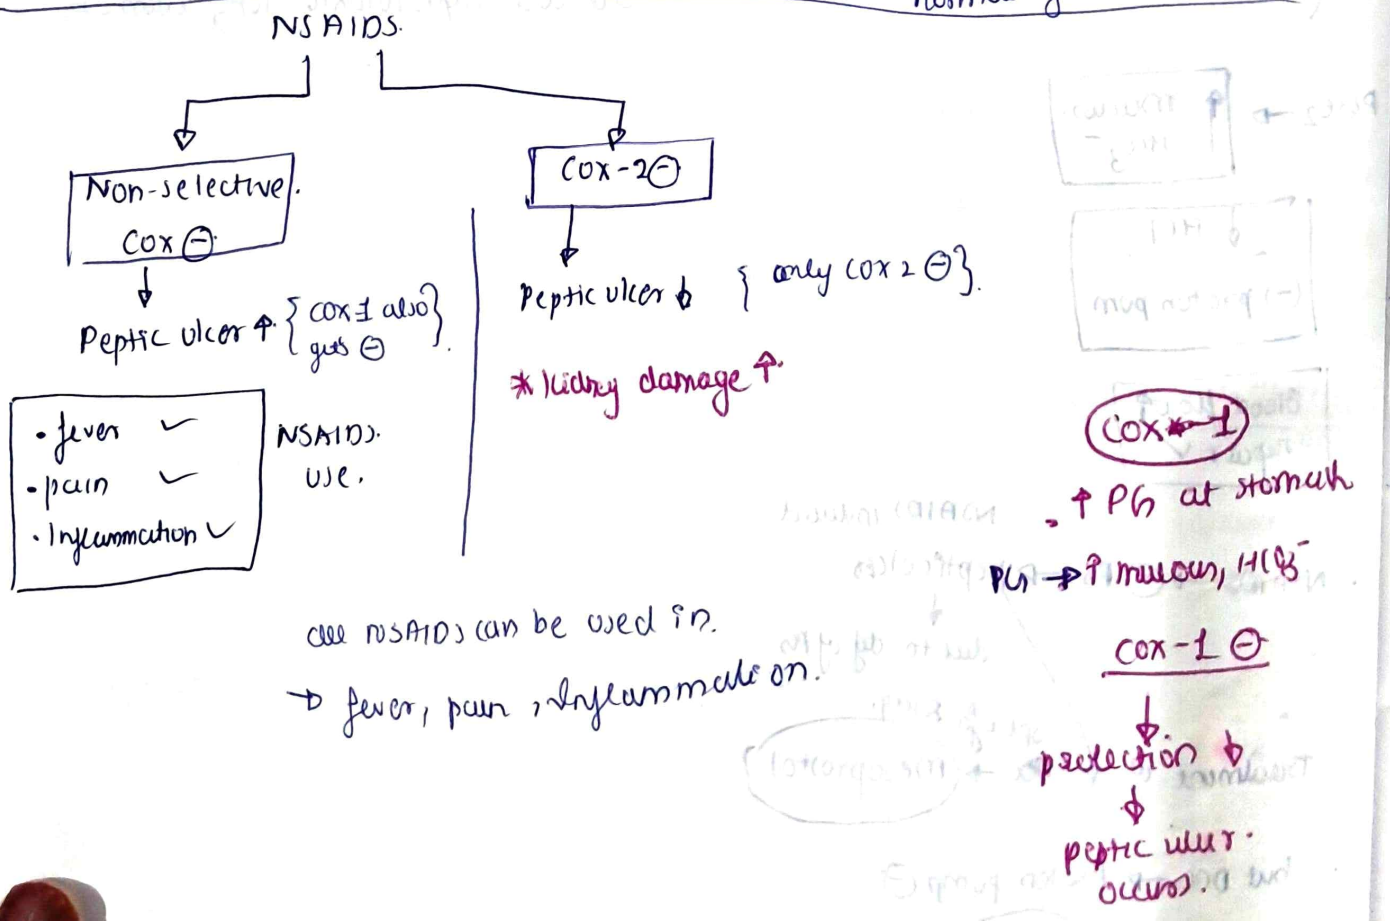 NSAIDS.
Non-selective.
COX ⊖.
Peptic ulcer ↑. { cox 1 also
gets ⊖ }.
• fever ✓
• pain ✓
• Inflammation ✓
NSAIDs.
use.
COX-2 ⊖
Peptic ulcer ↓ { only cox 2 ⊖ }.
* kidney damage ↑.
all NSAIDs can be used in.
→ fever, pain, Inflammation.
COX-1
↑ PG at stomach
PG → ↑ mucous, HCO3-
COX-1 ⊖
↓
protection ↓
↓
peptic ulcer.
occurs.